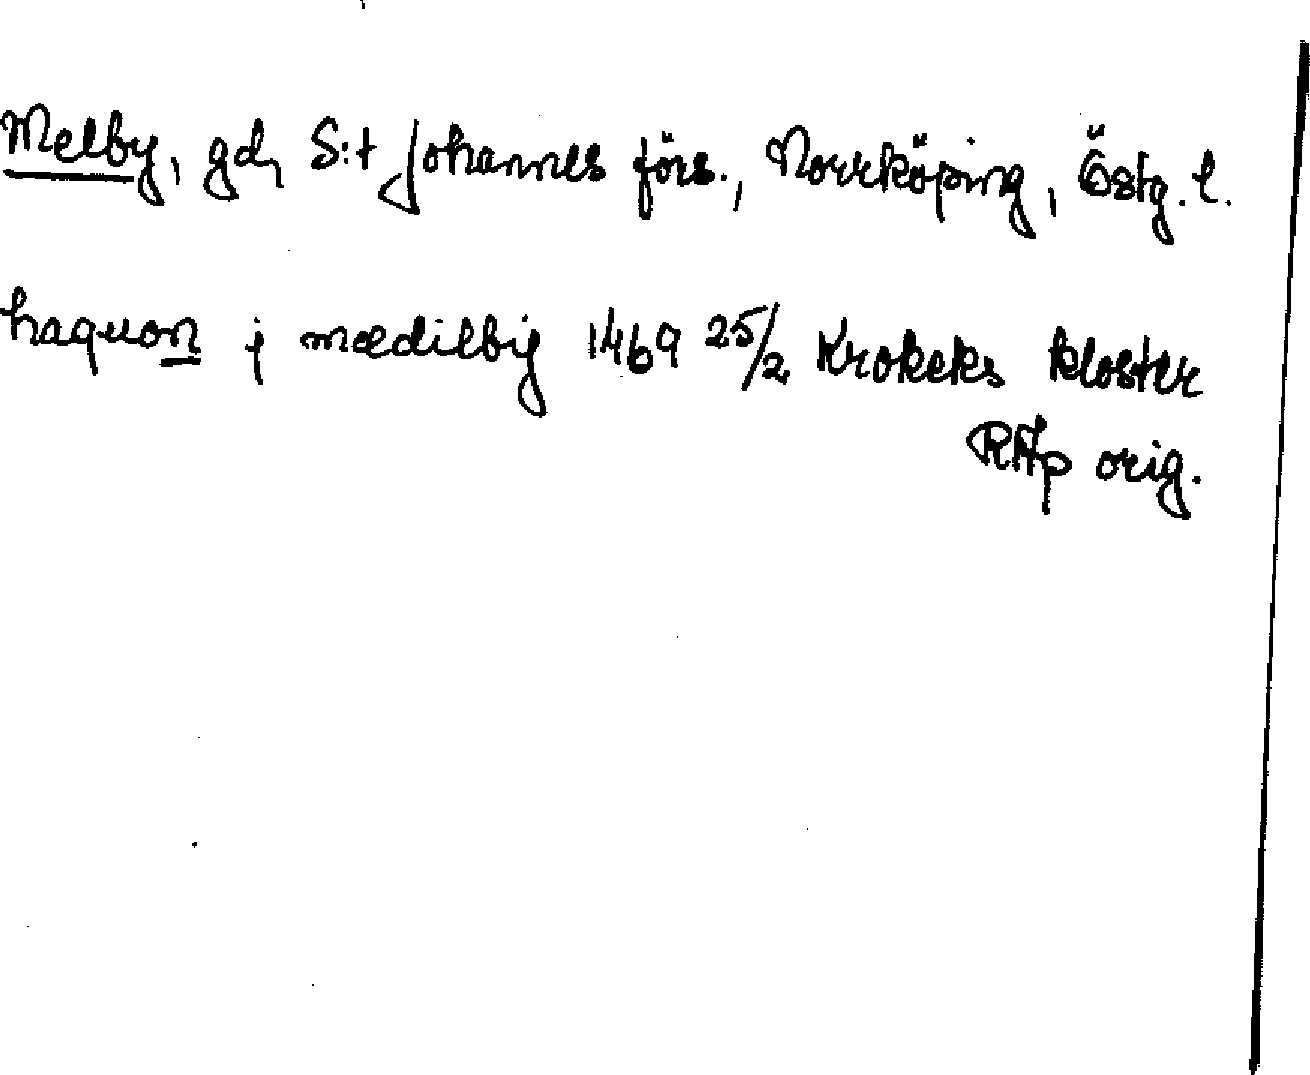 Melby, gd, S:t Johannes förs., Norrköping, Östg. l.
haquon j mædilbÿ 1469 25/2 Krokeks kloster
RAp orig.